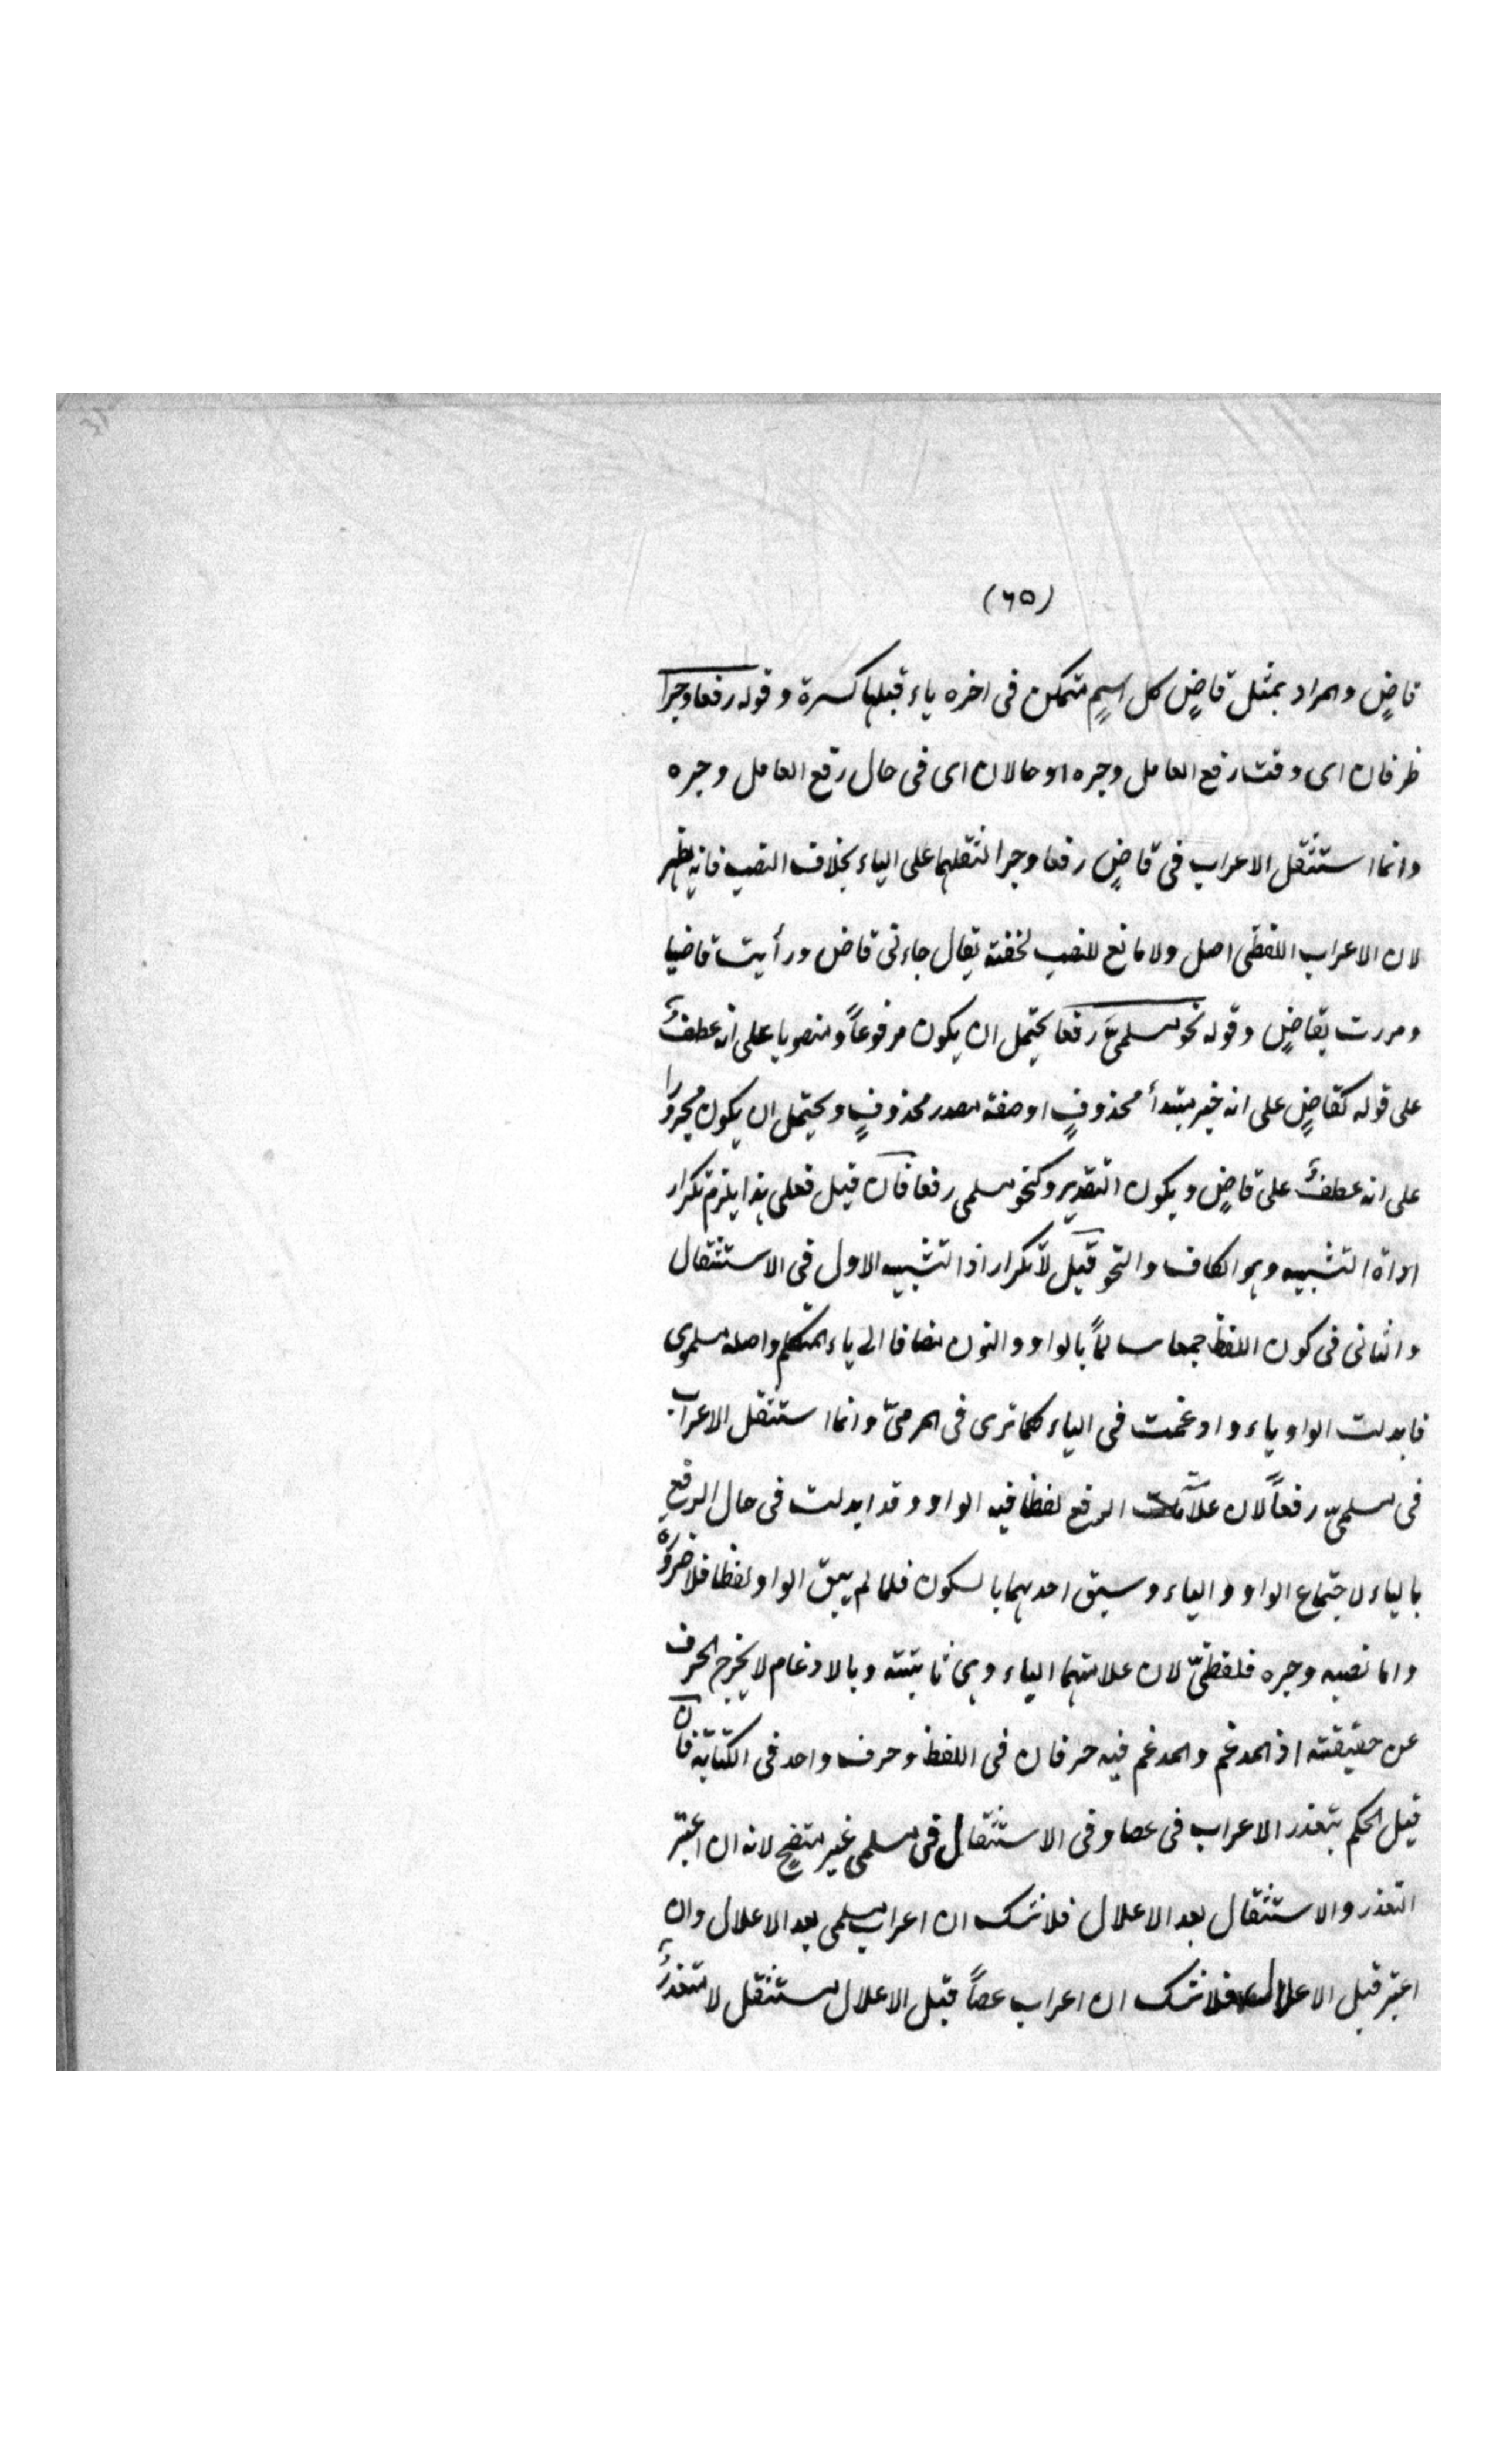 (٦٥)
قاضٍ والمراد بمثل قاضٍ كل اسمٍ متمكن فى اخره ياء قبلها كسرة وقوله رفعا وجرا
ظرفان اى وقت رفع العامل وجره او حالان اى فى حال رفع العامل وجره
وانما استثقل الاعراب فى قاضٍ رفعا وجرا لثقلهما على الياء بخلاف النصب فانه يظهر
لان الاعراب اللفظى اصل ولا مانع للنصب لخفته يقال جاءنى قاض ورأيت قاضيا
ومررت بقاضٍ وقوله نحو مسلمىّ رفعا يحتمل ان يكون مرفوعاً ومنصوبا على انه عطفٌ
على قوله كقاضٍ على انه خبر مبتدأ محذوفٍ او صفة مصدر محذوفٍ ويحتمل ان يكون مجرورا
على انه عطفٌ على قاضٍ ويكون التقدير وكنحو مسلمى رفعا فان قيل فعلى هذا يلزم تكرار
اداة التشبيه وهو الكاف والنحو قيل لا تكرار اذ التشبيه الاول فى الاستثقال
والثانى فى كون اللفظ جمعا سالماً بالواو والنون مضافا الى ياء المتكلم واصله مسلموى
فابدلت الواو ياء وادغمت فى الياء كما ترى فى المرمىّ وانما استثقل الاعراب
فى مسلمىّ رفعاً لان علامت الرفع لفظا فيه الواو وقد ابدلت فى حال الرفع
بالياء لاجتماع الواو والياء وسبق احدهما بالسكون فلما لم يبق الواو لفظا فلا ضرورة
واما نصبه وجره فلفظىّ لان علامتهما الياء وهى ثابتة وبالادغام لا يخرج الحرف
عن حقيقته اذ المدغم والمدغم فيه حرفان فى اللفظ وحرف واحد فى الكتابة فان
قيل الحكم بتعذر الاعراب فى عصا وفى الاستثقال فى مسلمى غير متضح لانه ان اعتبر
التعذر والاستثقال بعد الاعلال فلا شك ان اعراب مسلمى بعد الاعلال وان
اعتبر قبل الاعلال فلا شك ان اعراب عصاً قبل الاعلال مستثقل لا متعذرٌ